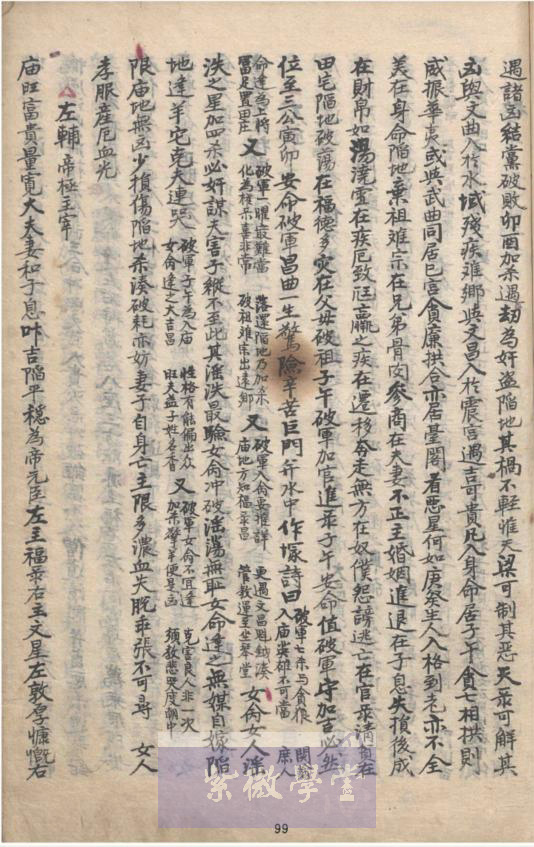 遇諸凶結黨破敗卯酉加杀遇劫為奸盗陷地其禍不輕惟天梁可制其惡天彔可解其
凶與文曲入於水域殘疾难鄉與文昌入於震宮遇吉可貴凡入身命居子午貪亡相拱則
威振華夷或與武曲同居巳宮貪廉拱合亦居臺閣看惡星何如庚癸生人入格到老亦不全
美在身命陷地棄祖难宗在兄弟骨肉參商在夫妻不正主婚姻進退在子息失損後成
在財帛如湯澆雪在疾厄致尫羸之疾在迁移奔走無方在奴僕怨謗逃亡在官彔清貧在
田宅陷地破蕩在福德多灾在父毋破祖子午破軍加官進彔子午安命值破軍守加吉必然
位至三公寅卯安命破軍昌曲一生驚險辛苦巨門 水中作塚詩曰 破軍七杀与貪狼 入庙英雄不可當 関 庶人
命逢為上將 富足置田庄 又 破軍一曜最難當 化為权彔喜非常 落遷陷地乃加杀 破祖难宗出遠鄉 又 破軍入命要推詳 庙地方知福壽昌 更遇文昌魁鉞湊 管教運至坐琴堂 女命女人淫
泆之星加四杀必奸謀夫害子縱不至此其淫泆最驗女命冲破淫蕩無恥女命逢之無媒自嫁陷
地逢羊陀克夫連哭 破軍子午為入庙 女命逢之大吉昌 性格有能偏出众 旺夫益子姓名香 又 破軍女命不宜逢 加杀擎羊便是凶 克害良人非一次 須教悲哭度朝中
限庙地無凶少損傷陷地杀湊破耗亦妨妻子自身亡主限多濃血失脫乖張不可尋 女人
孝服產厄血光
左輔 帝極主宰
庙旺富貴量寬大夫妻和子息叶吉陷平穏為帝元臣左主福彔右主文星左敦厚慷慨右
紫微學堂
99